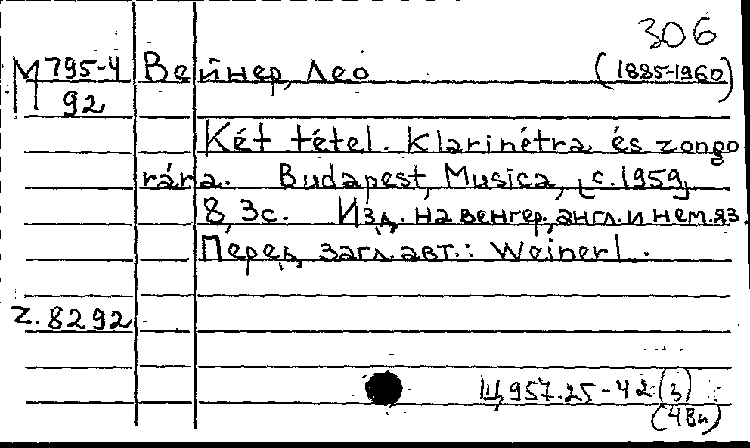 306
М 795-4 Вейнер, Лео (1885-1960)
92
Két tétel. Klarinétra és zongo
rára. Budapest, Musica, [c. 1959]
8, 3с. Изд. на венгер., англ. и нем. яз.
Перед загл. авт.: Weiner L.
Z. 8292
Ц 957.25-42 (3)
(4Вн)